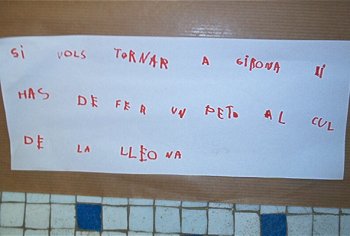 Si VOLS TORNAR A GIRONA LI
HAS DE FER UN PETO AL CUL
DE LA LLEONA